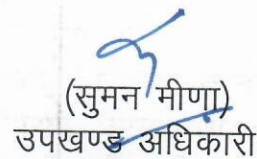 (सुमन मीणा)
उपखण्ड अधिकारी